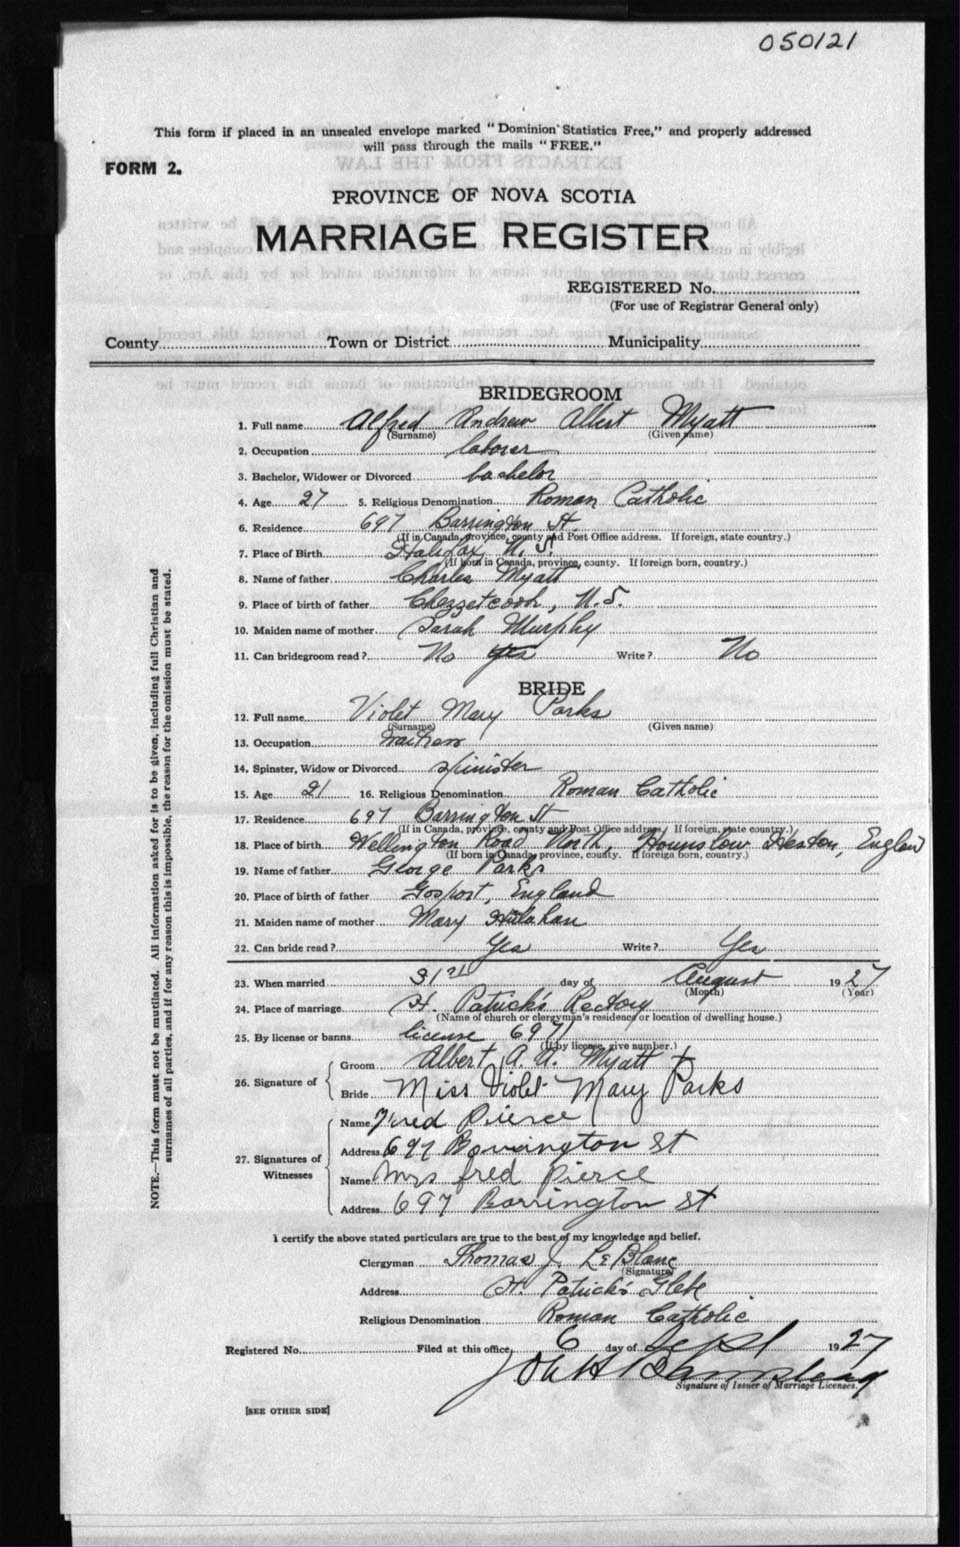 050121
This form if placed in an unsealed envelope marked "Dominion Statistics Free," and properly addressed
will pass through the mails "FREE."
FORM 2.
PROVINCE OF NOVA SCOTIA
MARRIAGE REGISTER
REGISTERED No.
(For use of Registrar General only)
County Town or District Municipality
BRIDEGROOM
1. Full name Alfred Andrew Albert Myatt
(Surname) (Given name)
2. Occupation laborer
3. Bachelor, Widower or Divorced bachelor
4. Age 27 5. Religious Denomination Roman Catholic
6. Residence 697 Barrington St
(If in Canada, province, county and Post Office address. If foreign, state country.)
7. Place of Birth Halifax N. S.
(If born in Canada, province, county. If foreign born, country.)
8. Name of father Charles Myatt
9. Place of birth of father Chezzetcook, N.S.
10. Maiden name of mother Sarah Murphy
11. Can bridegroom read? No Yes Write? No
BRIDE
12. Full name Violet Mary Parks
(Surname) (Given name)
13. Occupation waitress
14. Spinster, Widow or Divorced spinister
15. Age 21 16. Religious Denomination Roman Catholic
17. Residence 697 Barrington St
(If in Canada, province, county and Post Office address. If foreign, state country.)
18. Place of birth Wellington Road North, Hounslow Heston, England
(If born in Canada, province, county. If foreign born, country.)
19. Name of father George Parks
20. Place of birth of father Gosport, England
21. Maiden name of mother Mary Hulahan
22. Can bride read? Yes Write? Yes
23. When married 31st day of August 1927
(Month) (Year)
24. Place of marriage St. Patrick's Rectory
(Name of church or clergyman's residence or location of dwelling house.)
25. By license or banns license 6971
(If by license, give number.)
26. Signature of
Groom Albert A. A. Myatt +
Bride Miss Violet Mary Parks
27. Signatures of Witnesses
Name Fred Pierce
Address 697 Barrington St
Name Mrs fred Pierce
Address 697 Barrington St
I certify the above stated particulars are true to the best of my knowledge and belief.
Clergyman Thomas J. LeBlanc
(Signature)
Address St. Patrick's Glebe
Religious Denomination Roman Catholic
Registered No. Filed at this office, 6 day of Sept 1927
Signature of Issuer of Marriage Licenses.
[SEE OTHER SIDE]
NOTE.—This form must not be mutilated. All information asked for is to be given, including full Christian and
surnames of all parties, and if for any reason this is impossible, the reason for the omission must be stated.